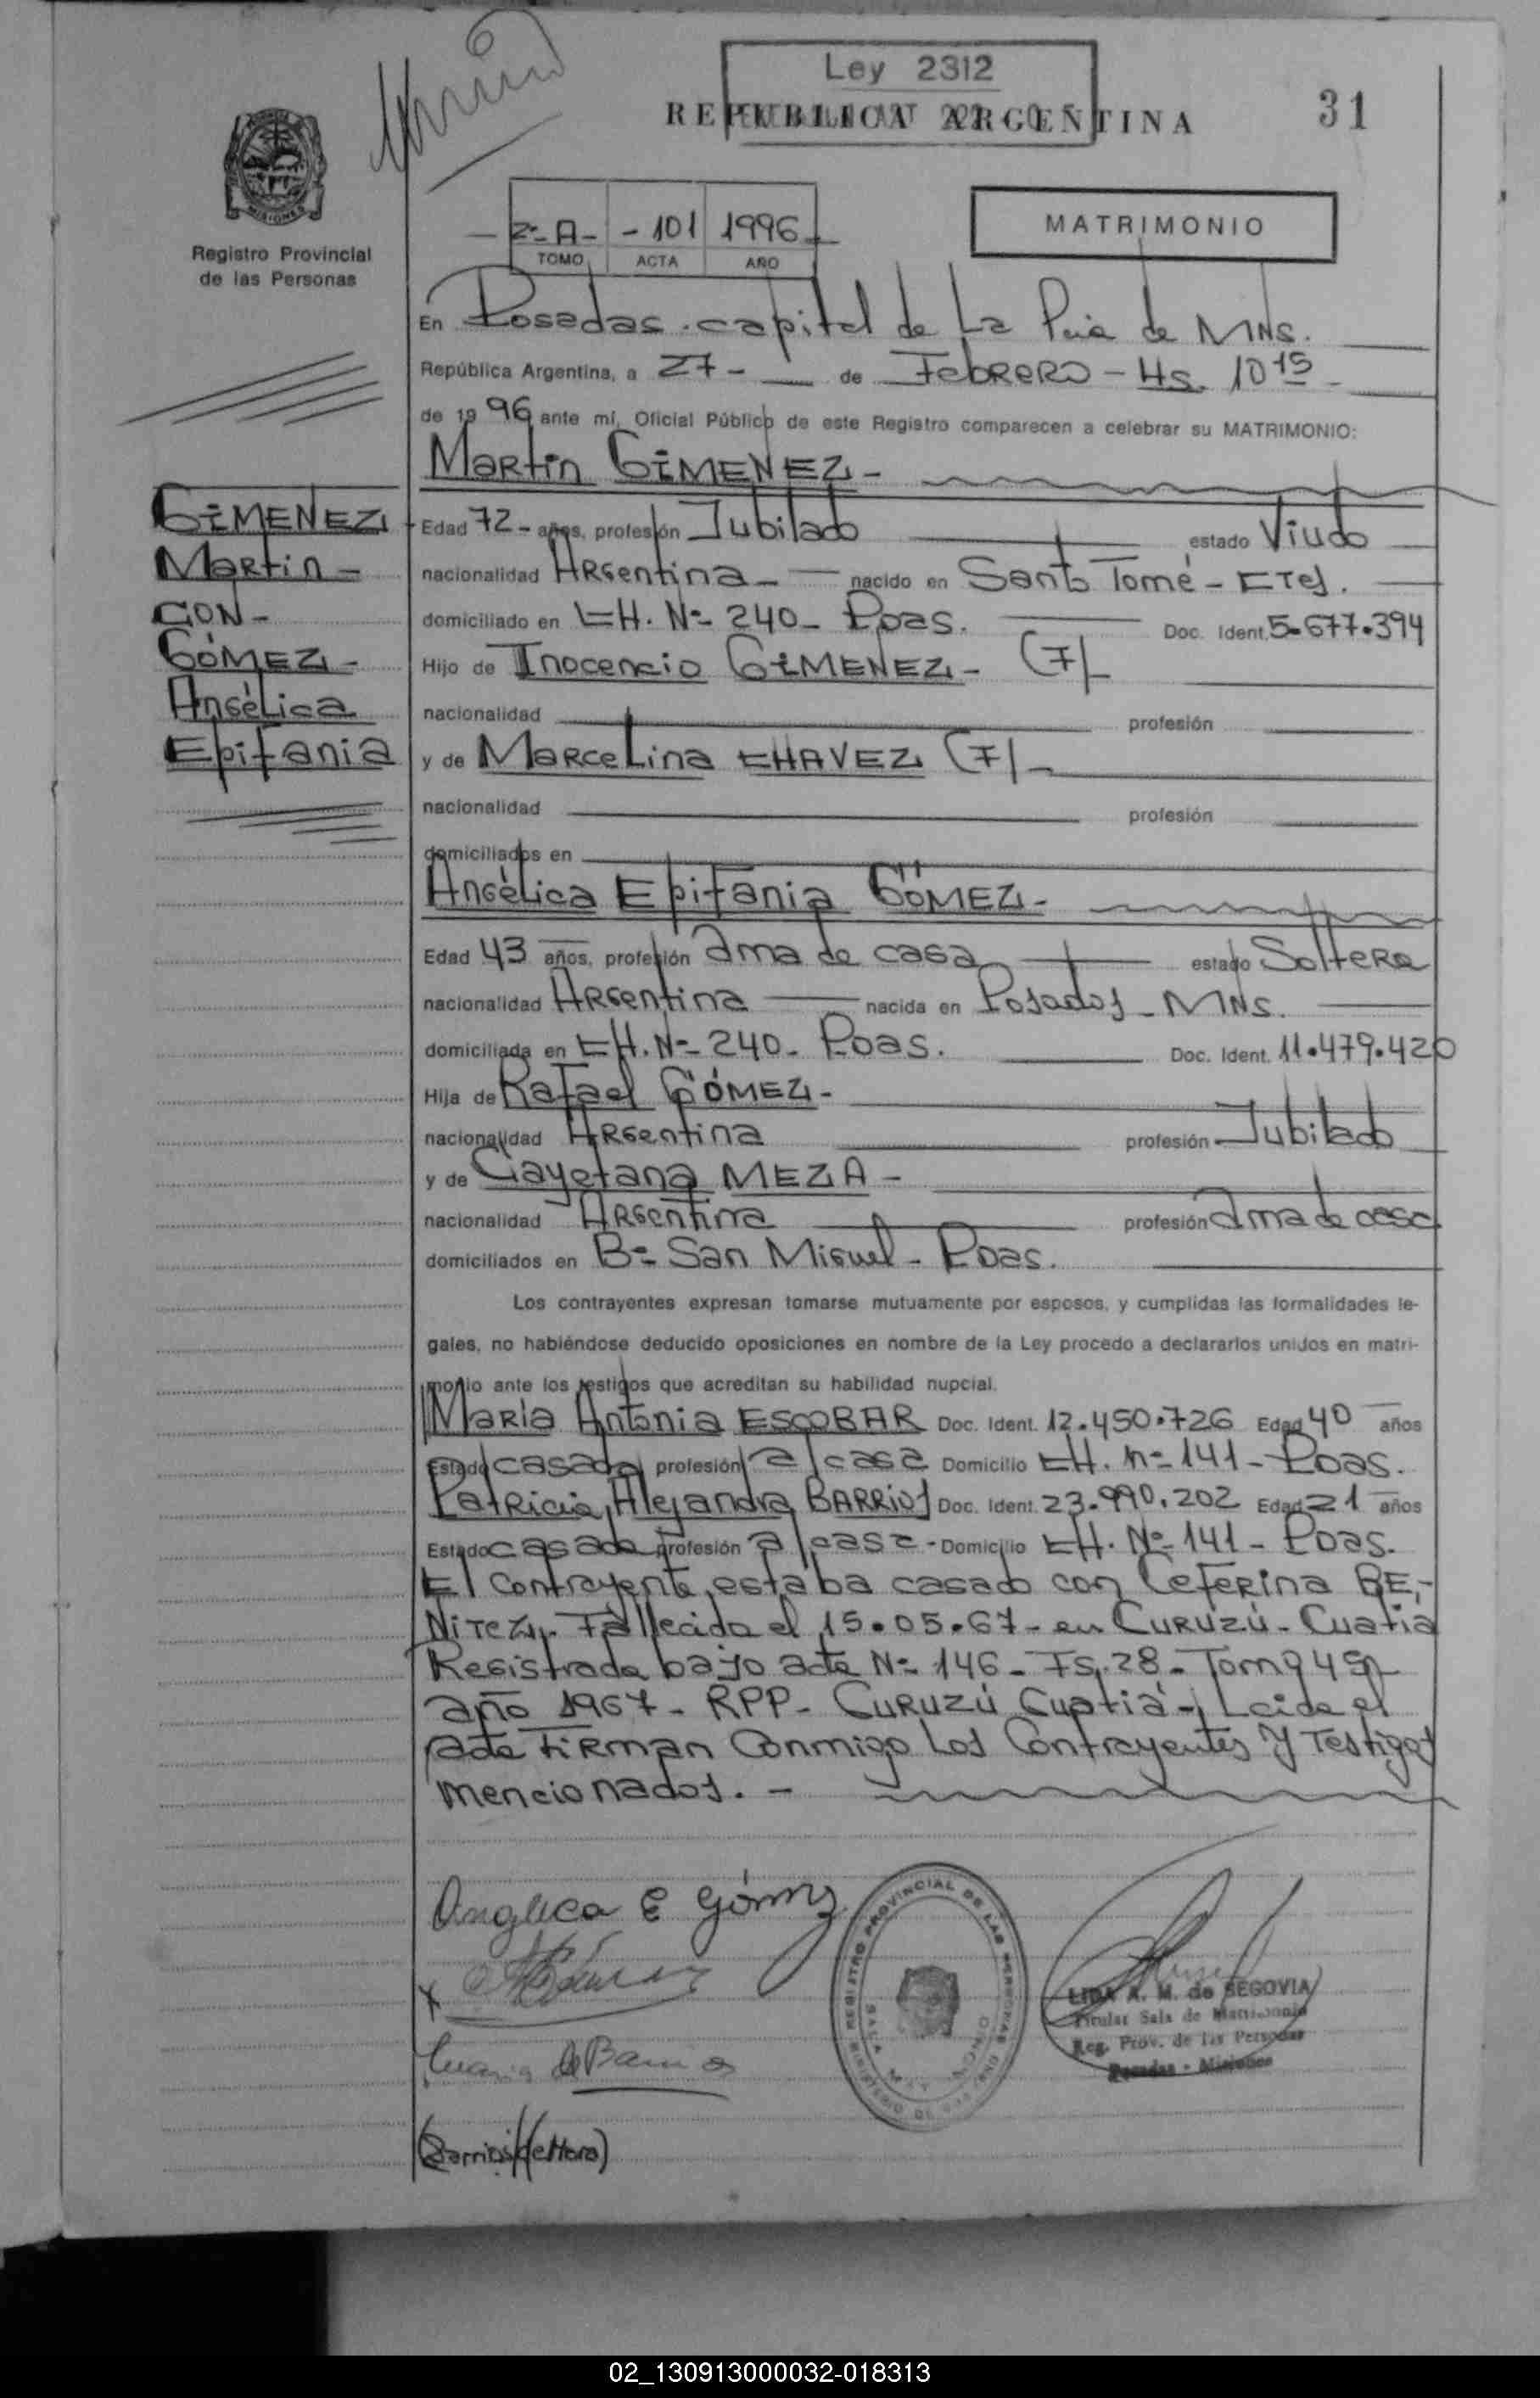 Ley 2312
REPUBLICA ARGENTINA
31
MISIONES
Registro Provincial
de las Personas
2º A - - 101 1996
TOMO ACTA AÑO
MATRIMONIO
En Posadas. capital de La Pcia de MNS.
República Argentina, a 27 - de Febrero - Hs. 10 15 -
de 19 96 ante mí, Oficial Público de este Registro comparecen a celebrar su MATRIMONIO:
Martín GIMENEZ -
GIMENEZ
Martin -
CON -
GÓMEZ -
Angélica
Epifania
Edad 72 - años, profesión Jubilado estado Viudo
nacionalidad Argentina - nacido en Santo Tomé - CTES.
domiciliado en CH. Nº 240 - Pdas. Doc. Ident. 5.677.394
Hijo de Inocencio GIMENEZ - (7) -
nacionalidad profesión
y de Marcelina CHAVEZ (7) -
nacionalidad profesión
domiciliados en
Angélica Epifania GÓMEZ -
Edad 43 años, profesión ama de casa estado Soltera
nacionalidad Argentina nacida en Posadas - MNS.
domiciliada en CH. Nº 240 - Pdas. Doc. Ident. 11.479.420
Hija de Rafael GÓMEZ -
nacionalidad Argentina profesión Jubilado
y de Cayetana MEZA -
nacionalidad Argentina profesión ama de casa
domiciliados en Bº San Miguel - Pdas.
Los contrayentes expresan tomarse mutuamente por esposos, y cumplidas las formalidades le-
gales, no habiéndose deducido oposiciones en nombre de la Ley procedo a declararlos unidos en matri-
monio ante los testigos que acreditan su habilidad nupcial.
María Antonia ESCOBAR Doc. Ident. 12.450.726 Edad 40 años
Estado casada profesión a/casa Domicilio CH. nº 141 - Pdas.
Patricia Alejandra BARRIOS Doc. Ident. 23.990.202 Edad 21 años
Estado casada profesión a/casa - Domicilio CH. Nº 141 - Pdas.
El contrayente estaba casado con Ceferina BE-
NITEZ, - Fallecida el 15.05.67 - en Curuzú - Cuatiá
Registrada bajo acta Nº 146 - Fs. 28 - Tomo
año 1967 - RPP - Curuzú Cuatiá - Leída el
acta Firman Conmigo Los Contrayentes Y Testigos
mencionados. -
Angelica E Gómez
Maria de Barrios
(Barrios de Mora)
REGISTRO PROVINCIAL DE LAS PERSONAS
MINISTERIO DE
LIDA A. M. de SEGOVIA
Titular Sala de Matrimonio
Reg. Prov. de las Personas
Posadas - Misiones
02_130913000032-018313